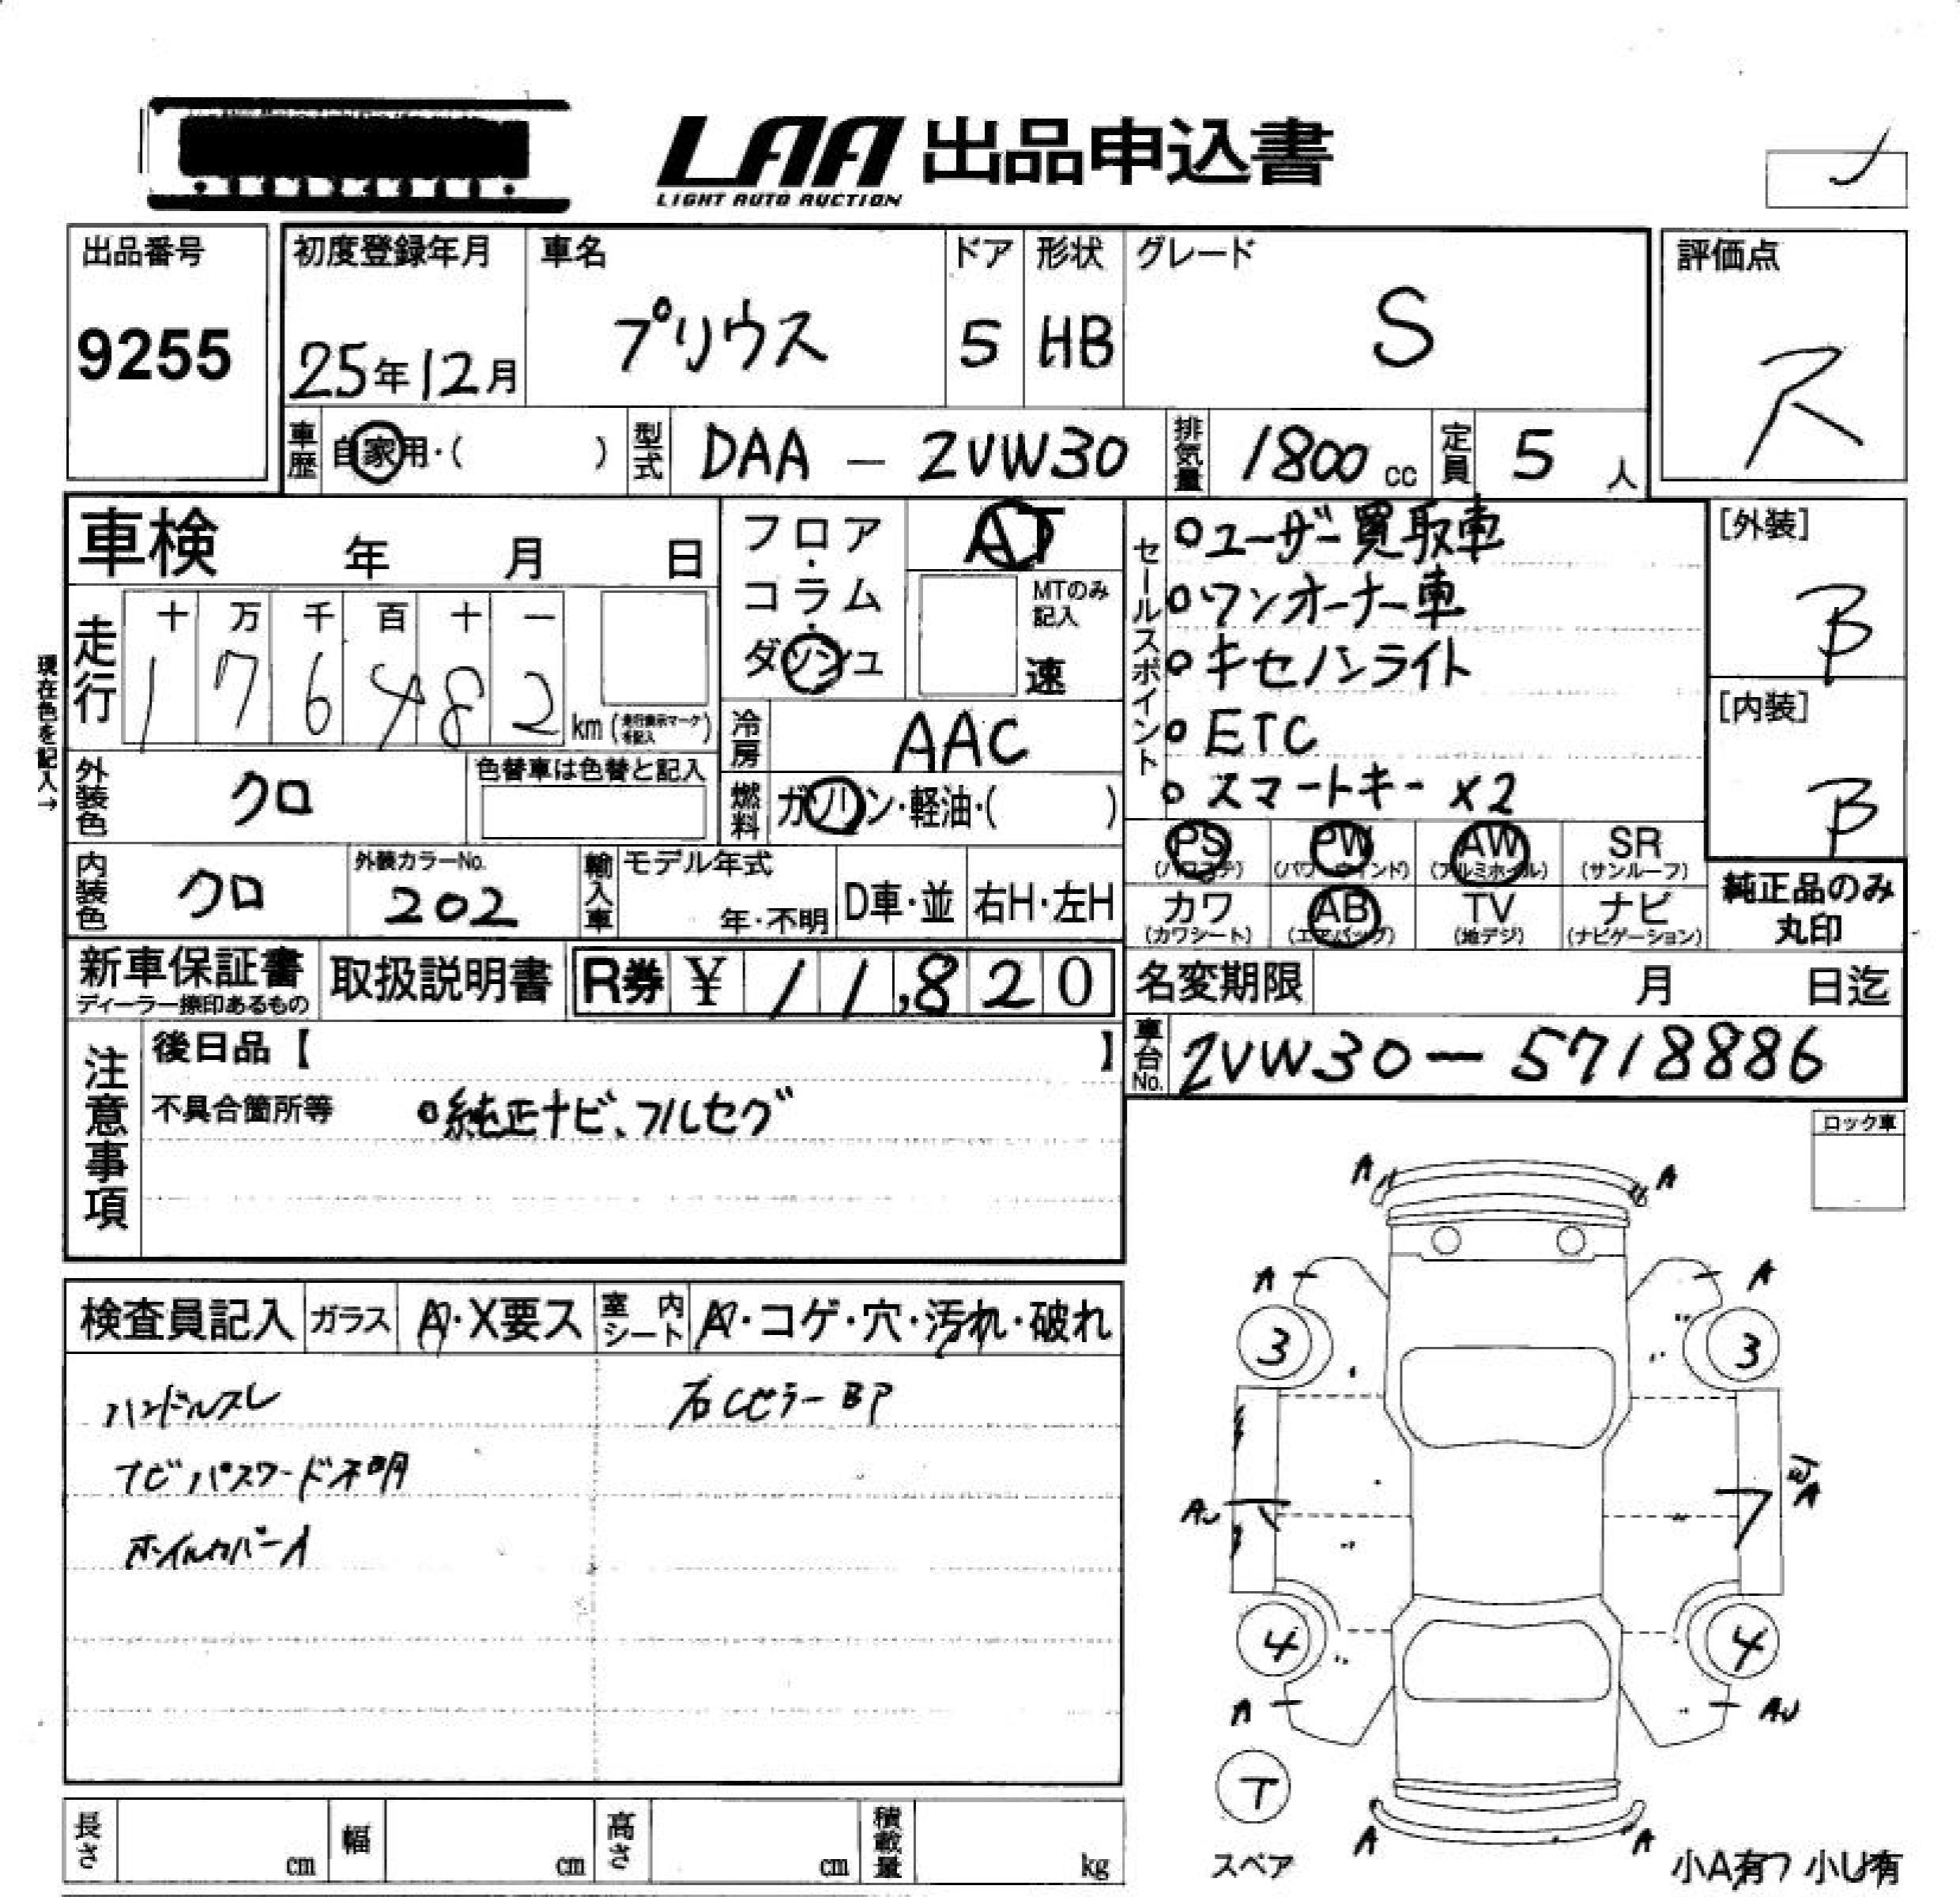 LAA 出品申込書
LIGHT AUTO AUCTION
出品番号
9255
初度登録年月
25年12月
車名
プリウス
ドア
5
形状
HB
グレード
S
評価点
車歴 自家用・( )
型式 DAA - ZVW30
排気量 1800 cc
定員 5 人
車検 年 月 日
フロア・コラム・ダッシュ
AT
MTのみ記入
速
セールスポイント
○ユーザー買取車
○ワンオーナー車
○キセノンライト
○ETC
○スマートキー×2
[外装]
B
[内装]
B
現在色を記入→
走行
十 万 千 百 十 一
1 7 6 4 8 2 km (走行表示マーク を記入)
冷房 AAC
外装色 クロ
色替車は色替と記入
燃料 ガソリン・軽油・( )
PS (パワステ)
PW (パワーウインド)
AW (アルミホイル)
SR (サンルーフ)
カワ (カワシート)
AB (エアバッグ)
TV (地デジ)
ナビ (ナビゲーション)
純正品のみ
丸印
内装色 クロ
外装カラーNo.
202
輸入車 モデル年式
年・不明
D車・並
右H・左H
新車保証書
ディーラー捺印あるもの
取扱説明書
R券 ¥ 11,820
名変期限 月 日迄
車台No. ZVW30-5718886
注意事項
後日品【 】
不具合箇所等 ○純正ナビ、フルセグ
ロック車
検査員記入
ガラス A・X要ス
室内シート A・コゲ・穴・汚れ・破れ
ハンドルスレ
右Cピラー BP
ナビパスワード不明
ホイルカバーA
A A
A A
3 3
A
4 4
A
T
スペア
A A
小A有 小U有
長さ cm
幅 cm
高さ cm
積載量 kg